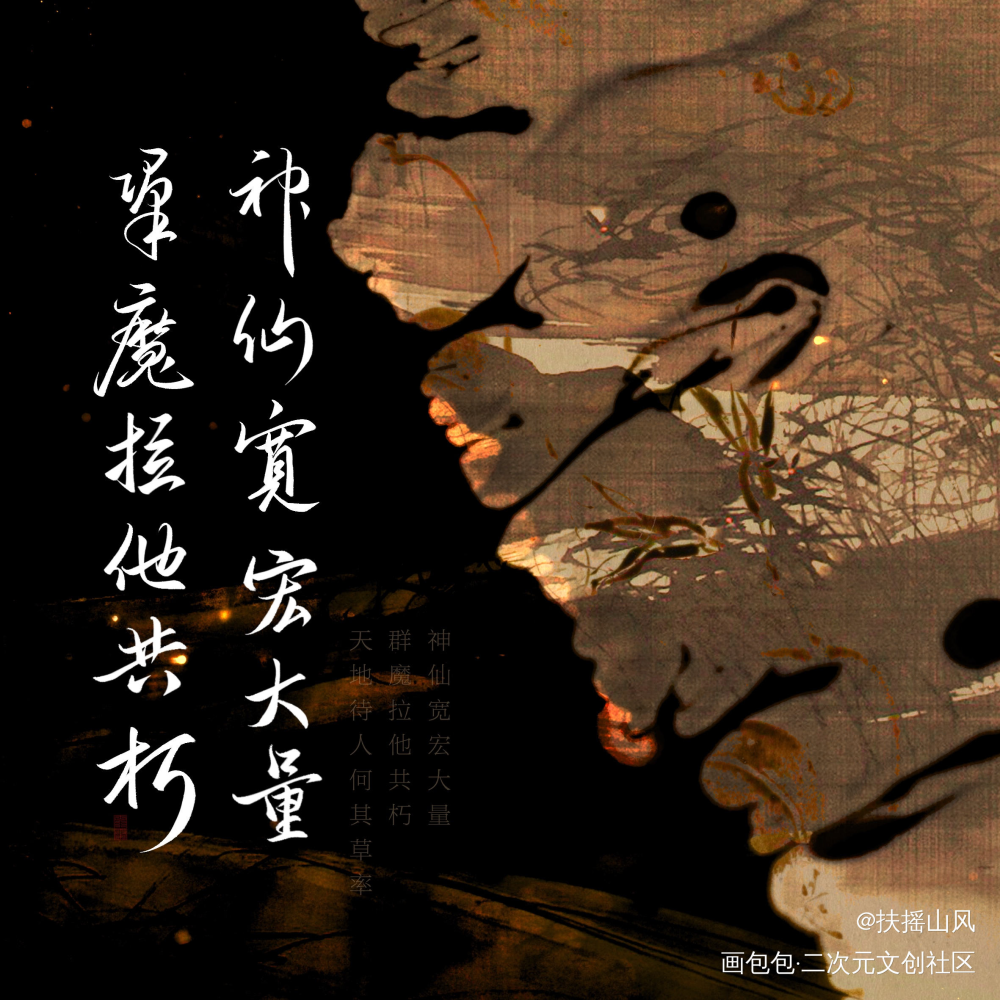 神仙宽宏大量
群魔拉他共朽
神仙宽宏大量
群魔拉他共朽
天地待人何其草率
@扶摇山风
画包包·二次元文创社区